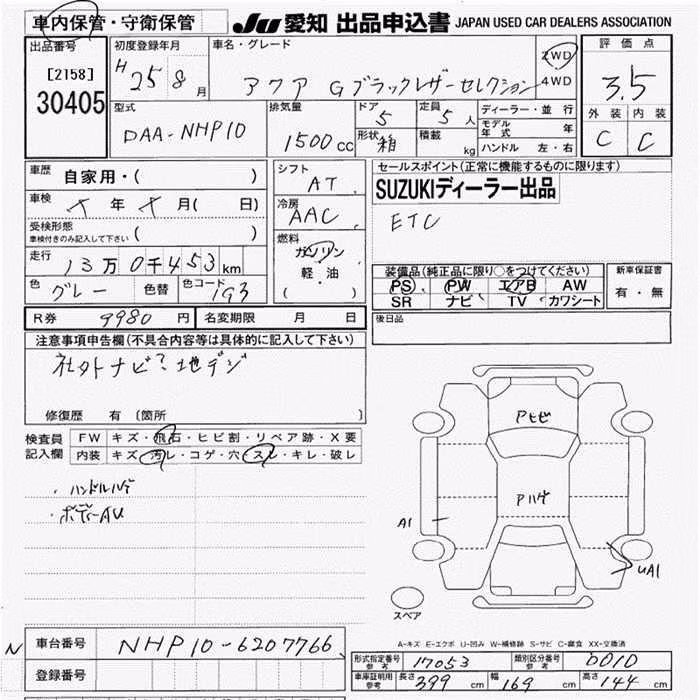 車内保管・守衛保管 JU 愛知 出品申込書 JAPAN USED CAR DEALERS ASSOCIATION
出品番号 初度登録年月 車名・グレード 評価点
[2158] H 25 8 月 アクア Gブラックレザーセレクション 2WD 4WD 3.5
30405
型式 排気量 ドア 定員 ディーラー・並行 外装 内装
DAA-NHP10 1500 CC 5 5 人 モデル年式 年 C C
形状 箱 積載 kg ハンドル 左・右
車歴 自家用・( ) シフト AT セールスポイント(正常に機能するものに限ります)
車検 メ 年 メ 月( 日) 冷房 AAC SUZUKIディーラー出品
受検形態 車検付きのみ記入して下さい ( ) ETC
走行 13万0千453km 燃料 ガソリン 軽・油 ( )
色 グレー 色替 色コード 1G3
装備品(純正品に限り○をつけてください) 新車保証書
PS PW エアB AW 有・無
SR ナビ TV カワシート
R券 9980 円 名変期限 月 日 後日品
注意事項申告欄(不具合内容等は具体的に記入して下さい)
社外ナビ?地デジ
修復歴 有 〔箇所 〕
検査員記入欄 FW キズ・飛石・ヒビ割・リペア跡・X要
内装 キズ・汚レ・コゲ・穴・スレ・キレ・破レ
・ハンドルハゲ
・ボディーAU
アヒビ
アハゲ
A1
UA1
スペア
A-キズ E-エクボ U-凹み W-補修跡 S-サビ C-腐食 XX-交換済
N 車台番号 NHP10-6207766
登録番号
形式指定番号 参考 17053 類別区分番号 参考 0010
車庫証明用 参考 長さ 399 cm 幅 169 cm 高さ 144 cm